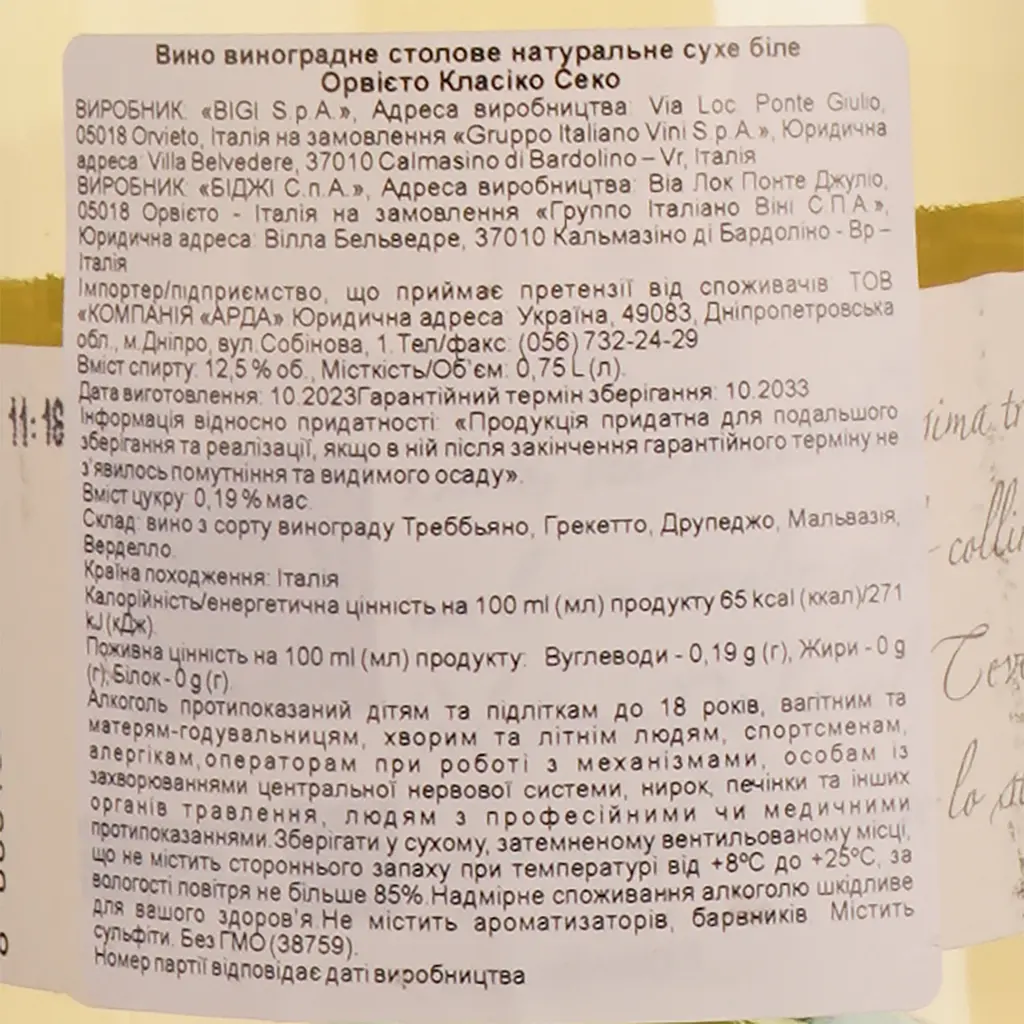 Вино виноградне столове натуральне сухе біле
Орвієто Класіко Секо
ВИРОБНИК: «BIGI S.p.A.», Адреса виробництва: Via Loc. Ponte Giulio,
05018 Orvieto, Італія на замовлення «Gruppo Italiano Vini S.p.A.», Юридична
адреса: Villa Belvedere, 37010 Calmasino di Bardolino – Vr, Італія
ВИРОБНИК: «БІДЖІ С.п.А.», Адреса виробництва: Віа Лок Понте Джуліо,
05018 Орвієто - Італія на замовлення «Группо Італіано Віні С.П.А.»,
Юридична адреса: Вілла Бельведре, 37010 Кальмазіно ді Бардоліно - Вр –
Італія
Імпортер/підприємство, що приймає претензії від споживачів: ТОВ
«КОМПАНІЯ «АРДА» Юридична адреса: Україна, 49083, Дніпропетровська
обл., м.Дніпро, вул.Собінова, 1.Тел/факс: (056) 732-24-29
Вміст спирту: 12,5 % об., Місткість/Об'єм: 0,75 L (л).
Дата виготовлення: 10.2023Гарантійний термін зберігання: 10.2033
Інформація відносно придатності: «Продукція придатна для подальшого
зберігання та реалізації, якщо в ній після закінчення гарантійного терміну не
з'явилось помутніння та видимого осаду».
Вміст цукру: 0,19 % мас.
Склад: вино з сорту винограду Треббьяно, Грекетто, Друпеджо, Мальвазія,
Верделло.
Країна походження: Італія
Калорійність/енергетична цінність на 100 ml (мл) продукту 65 kcal (ккал)/271
kJ (кДж).
Поживна цінність на 100 ml (мл) продукту: Вуглеводи - 0,19 g (г), Жири - 0 g
(г), Білок - 0 g (г).
Алкоголь протипоказаний дітям та підліткам до 18 років, вагітним та
матерям-годувальницям, хворим та літнім людям, спортсменам,
алергікам,операторам при роботі з механізмами, особам із
захворюваннями центральної нервової системи, нирок, печінки та інших
органів травлення, людям з професійними чи медичними
протипоказаннями.Зберігати у сухому, затемненому вентильованому місці,
що не містить стороннього запаху при температурі від +8ºС до +25ºС, за
вологості повітря не більше 85%.Надмірне споживання алкоголю шкідливе
для вашого здоров'я.Не містить ароматизаторів, барвників. Містить
сульфіти. Без ГМО (38759).
Номер партії відповідає даті виробництва
11:18
colli
lo